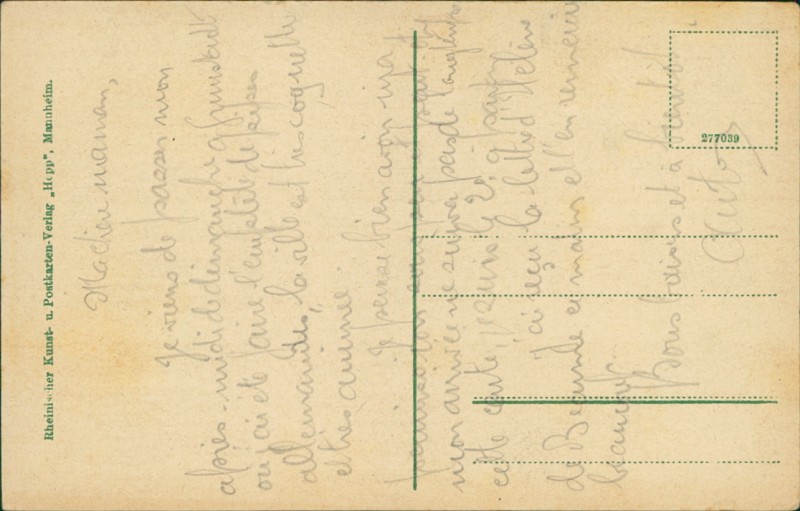 Rheinischer Kunst- u. Postkarten-Verlag „Hepp", Mannheim.
277039
Ma chère maman,
Je viens de passer mon
après-midi de dimanche à
où j'ai été faire l'emplète de
allemandes, la ville est très coquette
et très animée.
Je pense bien avoir ma
permission
mon arrivée ne suivra pas de longtemps
cette carte,
J'ai reçu la lettre d'Hélène
de Beaune en mains et l'en remercie
beaucoup.
Bons baisers et à bientôt